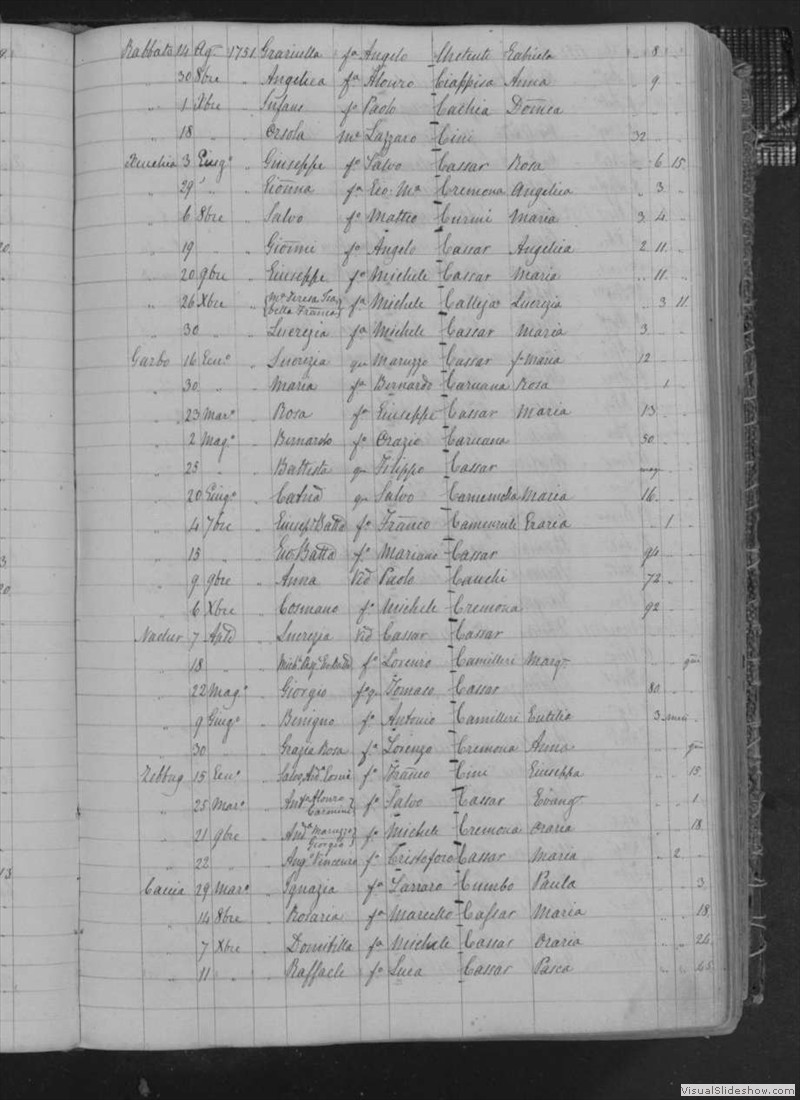 Rabbato 14 Ag 1751 Graziulla fa Angelo Gabriela .. 8 ..
.. 30 8bre .. Angelica fa Alonzo Ciappisa Anna .. 9
.. 1 Xbre .. fo Paolo Cachia Domca
.. 18 .. Orsola me Lazzaro Cini 32
3 Giugo .. Giuseppe fo Salvo Cassar Rosa .. 6 15
.. 29 .. Gionna fa Gio: Ma Cremona Angelica .. 3 ..
.. 6 8bre .. Salvo fo Matteo Curmi Maria 3 4 ..
.. 19 .. Gionni fo Angelo Cassar Angelica 2 11 ..
.. 20 9bre .. Giuseppe fo Michele Cassar Maria .. 11 ..
.. 26 Xbre .. Ma Teresa Isabella Franca fa Michele Calleja Lucrezia .. 3 11
.. 30 .. Lucrezia fa Michele Cassar Maria 3 ..
Garbo 16 Geno .. Lucrezia qm Maruzzo Cassar fa Maria 12 ..
.. 30 .. Maria fa Bernardo Caruana Rosa .. 1
.. 23 Maro .. Rosa fa Giuseppe Cassar Maria 13 ..
.. 2 Mago .. Bernardo fo Orazio Caruana 50 ..
.. 25 .. Battista qm Filippo Cassar
.. 20 Giugo .. Catna qm Salvo Maria 16 ..
.. 4 7bre .. Giusepe Batta fo Franco Grazia .. 1
.. 13 .. Gio Batta fo Mariano Cassar 94 ..
.. 9 9bre .. Anna Vid Paolo Cauchi 72 ..
.. 6 Xbre .. Cosmano fo Michele Cremona 92 ..
Nadur 7 Aple .. Lucrezia Vid Cassar Cassar
.. 18 .. fo Lorenzo Camilleri Marga
.. 22 Mago .. Giorgio fo qm Tomaso Cassar 80 ..
.. 9 Giugo .. Benigno fo Antonio Camilleri 3
.. 30 .. Grazia Rosa fa Lorenzo Cremona Anna
Zebbug 15 Geno .. fo Franco Cini Giuseppa .. 15
.. 25 Maro .. Anto Alonzo Carmine fo Salvo Cassar Evang .. 1
.. 21 9bre .. Anda Maruzzo Giorgio fo Michele Cremona Orazia .. 18
.. 22 .. Ango Vincenzo fo Cristoforo Cassar Maria .. 2 ..
Caccia 29 Maro .. Ignazia fa Lazzaro Cumbo Paula .. 3
.. 14 8bre .. Rosaria fa Marcello Cassar Maria .. 18
.. 7 Xbre .. Domitilla fa Michele Cassar Orazia .. 26
.. 11 .. Raffaele fo Luca Cassar Pasca .. 65
VisualSlideshow.com